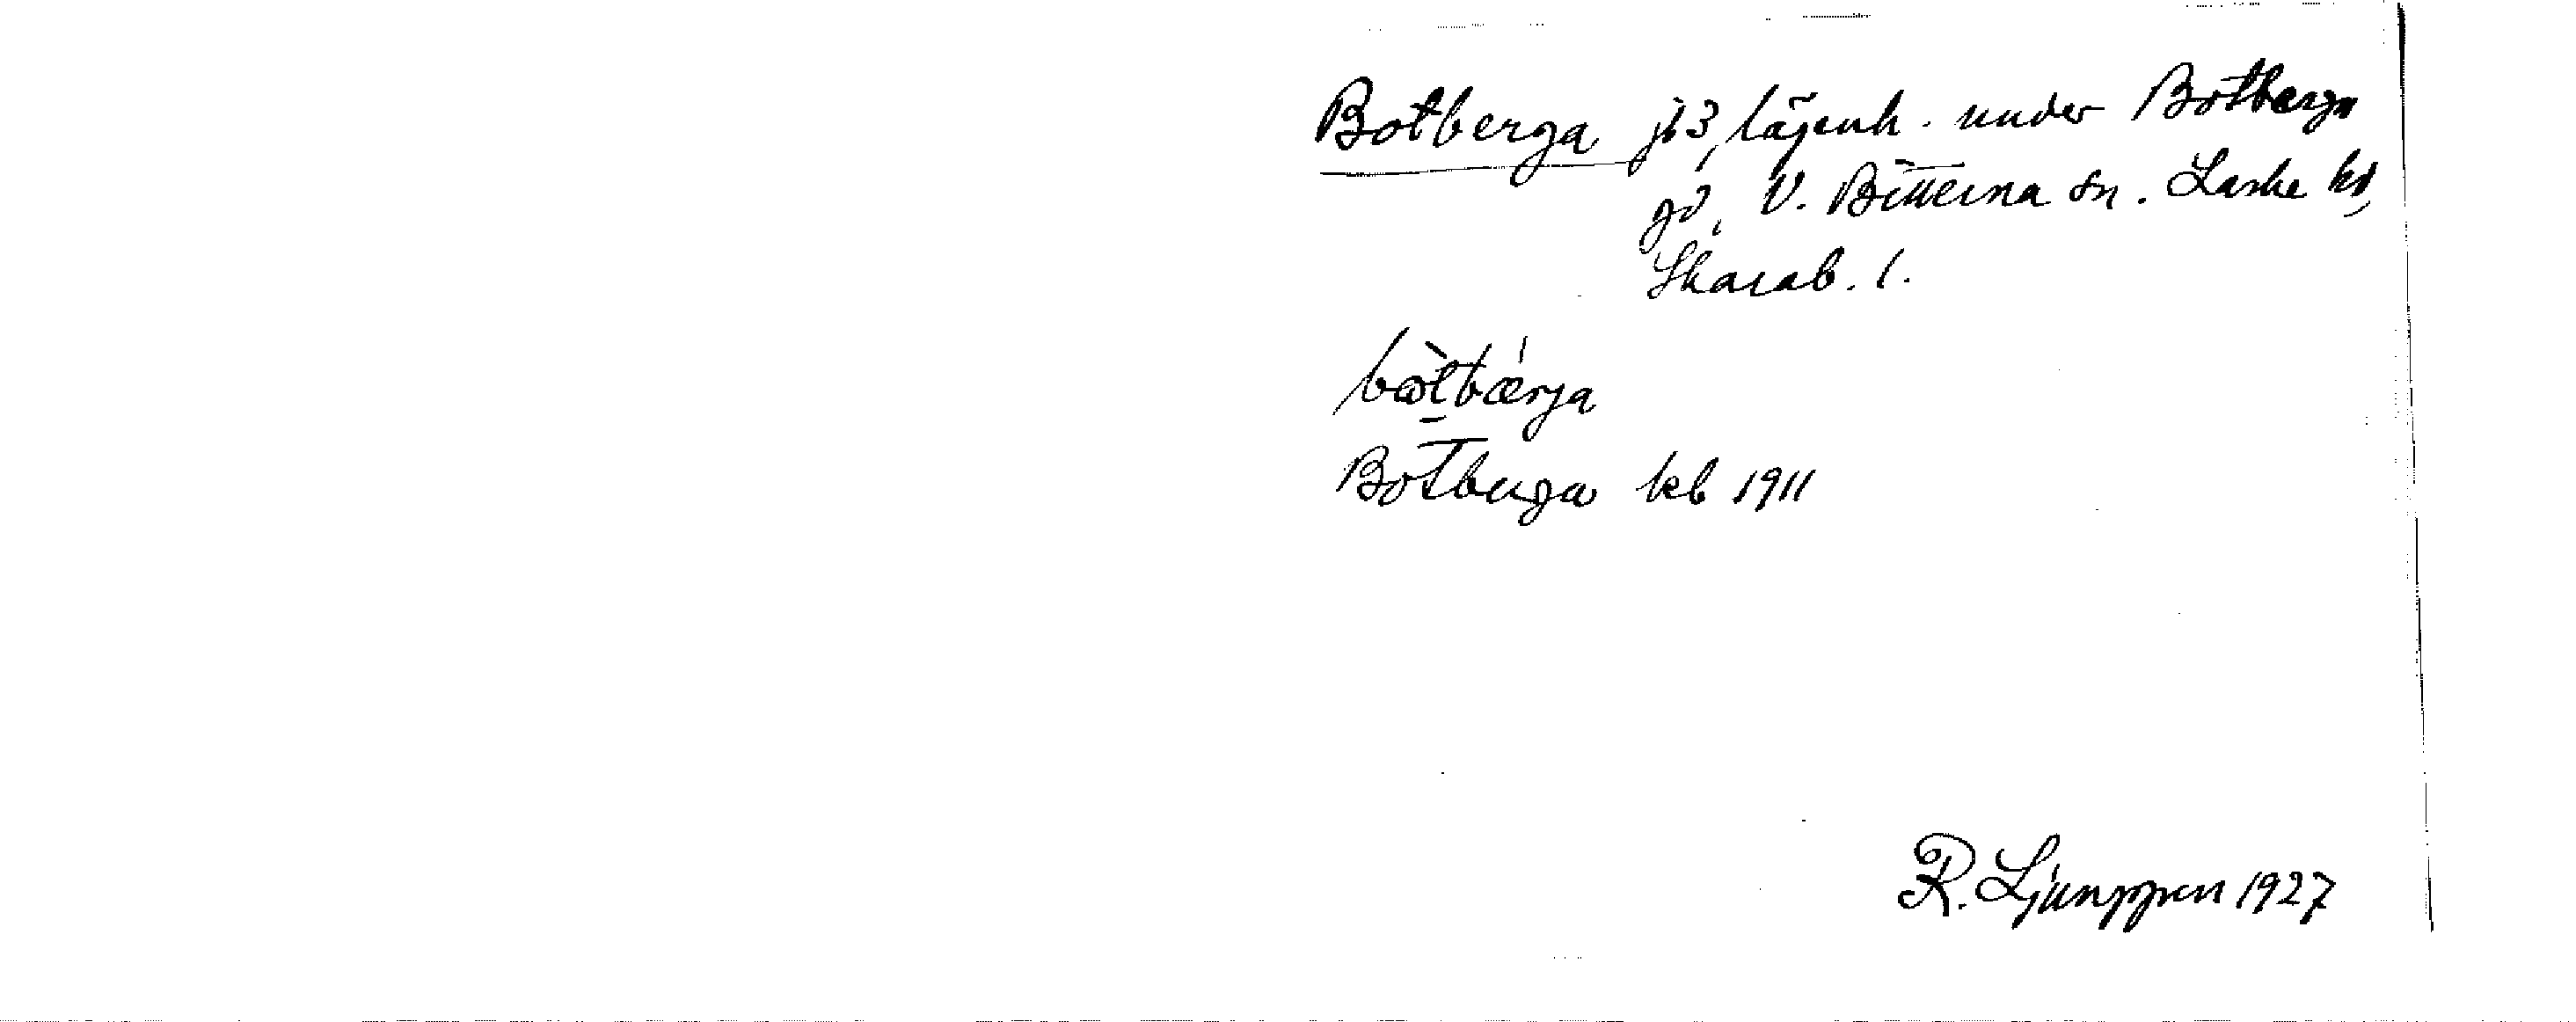 Botberga jb3, lägenh. under Botberga
gd, V. Bitterna sn. Laske hd,
Skarab. l.
bo̱tbærja
Botberga kb 1911
R. Ljunggren 1927